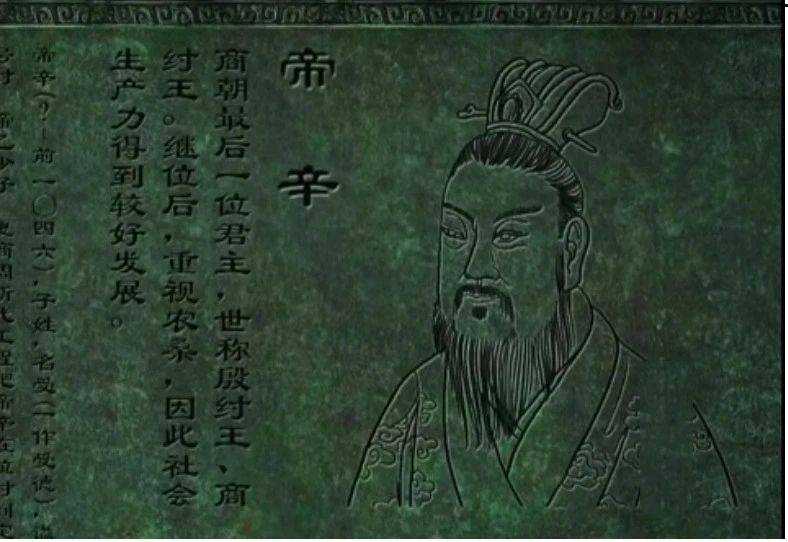 帝辛
商朝最后一位君主，世称殷纣王、商
纣王。继位后，重视农桑，因此社会
生产力得到较好发展。
帝辛(?—前一〇四六),子姓,名受(一作受德),谥